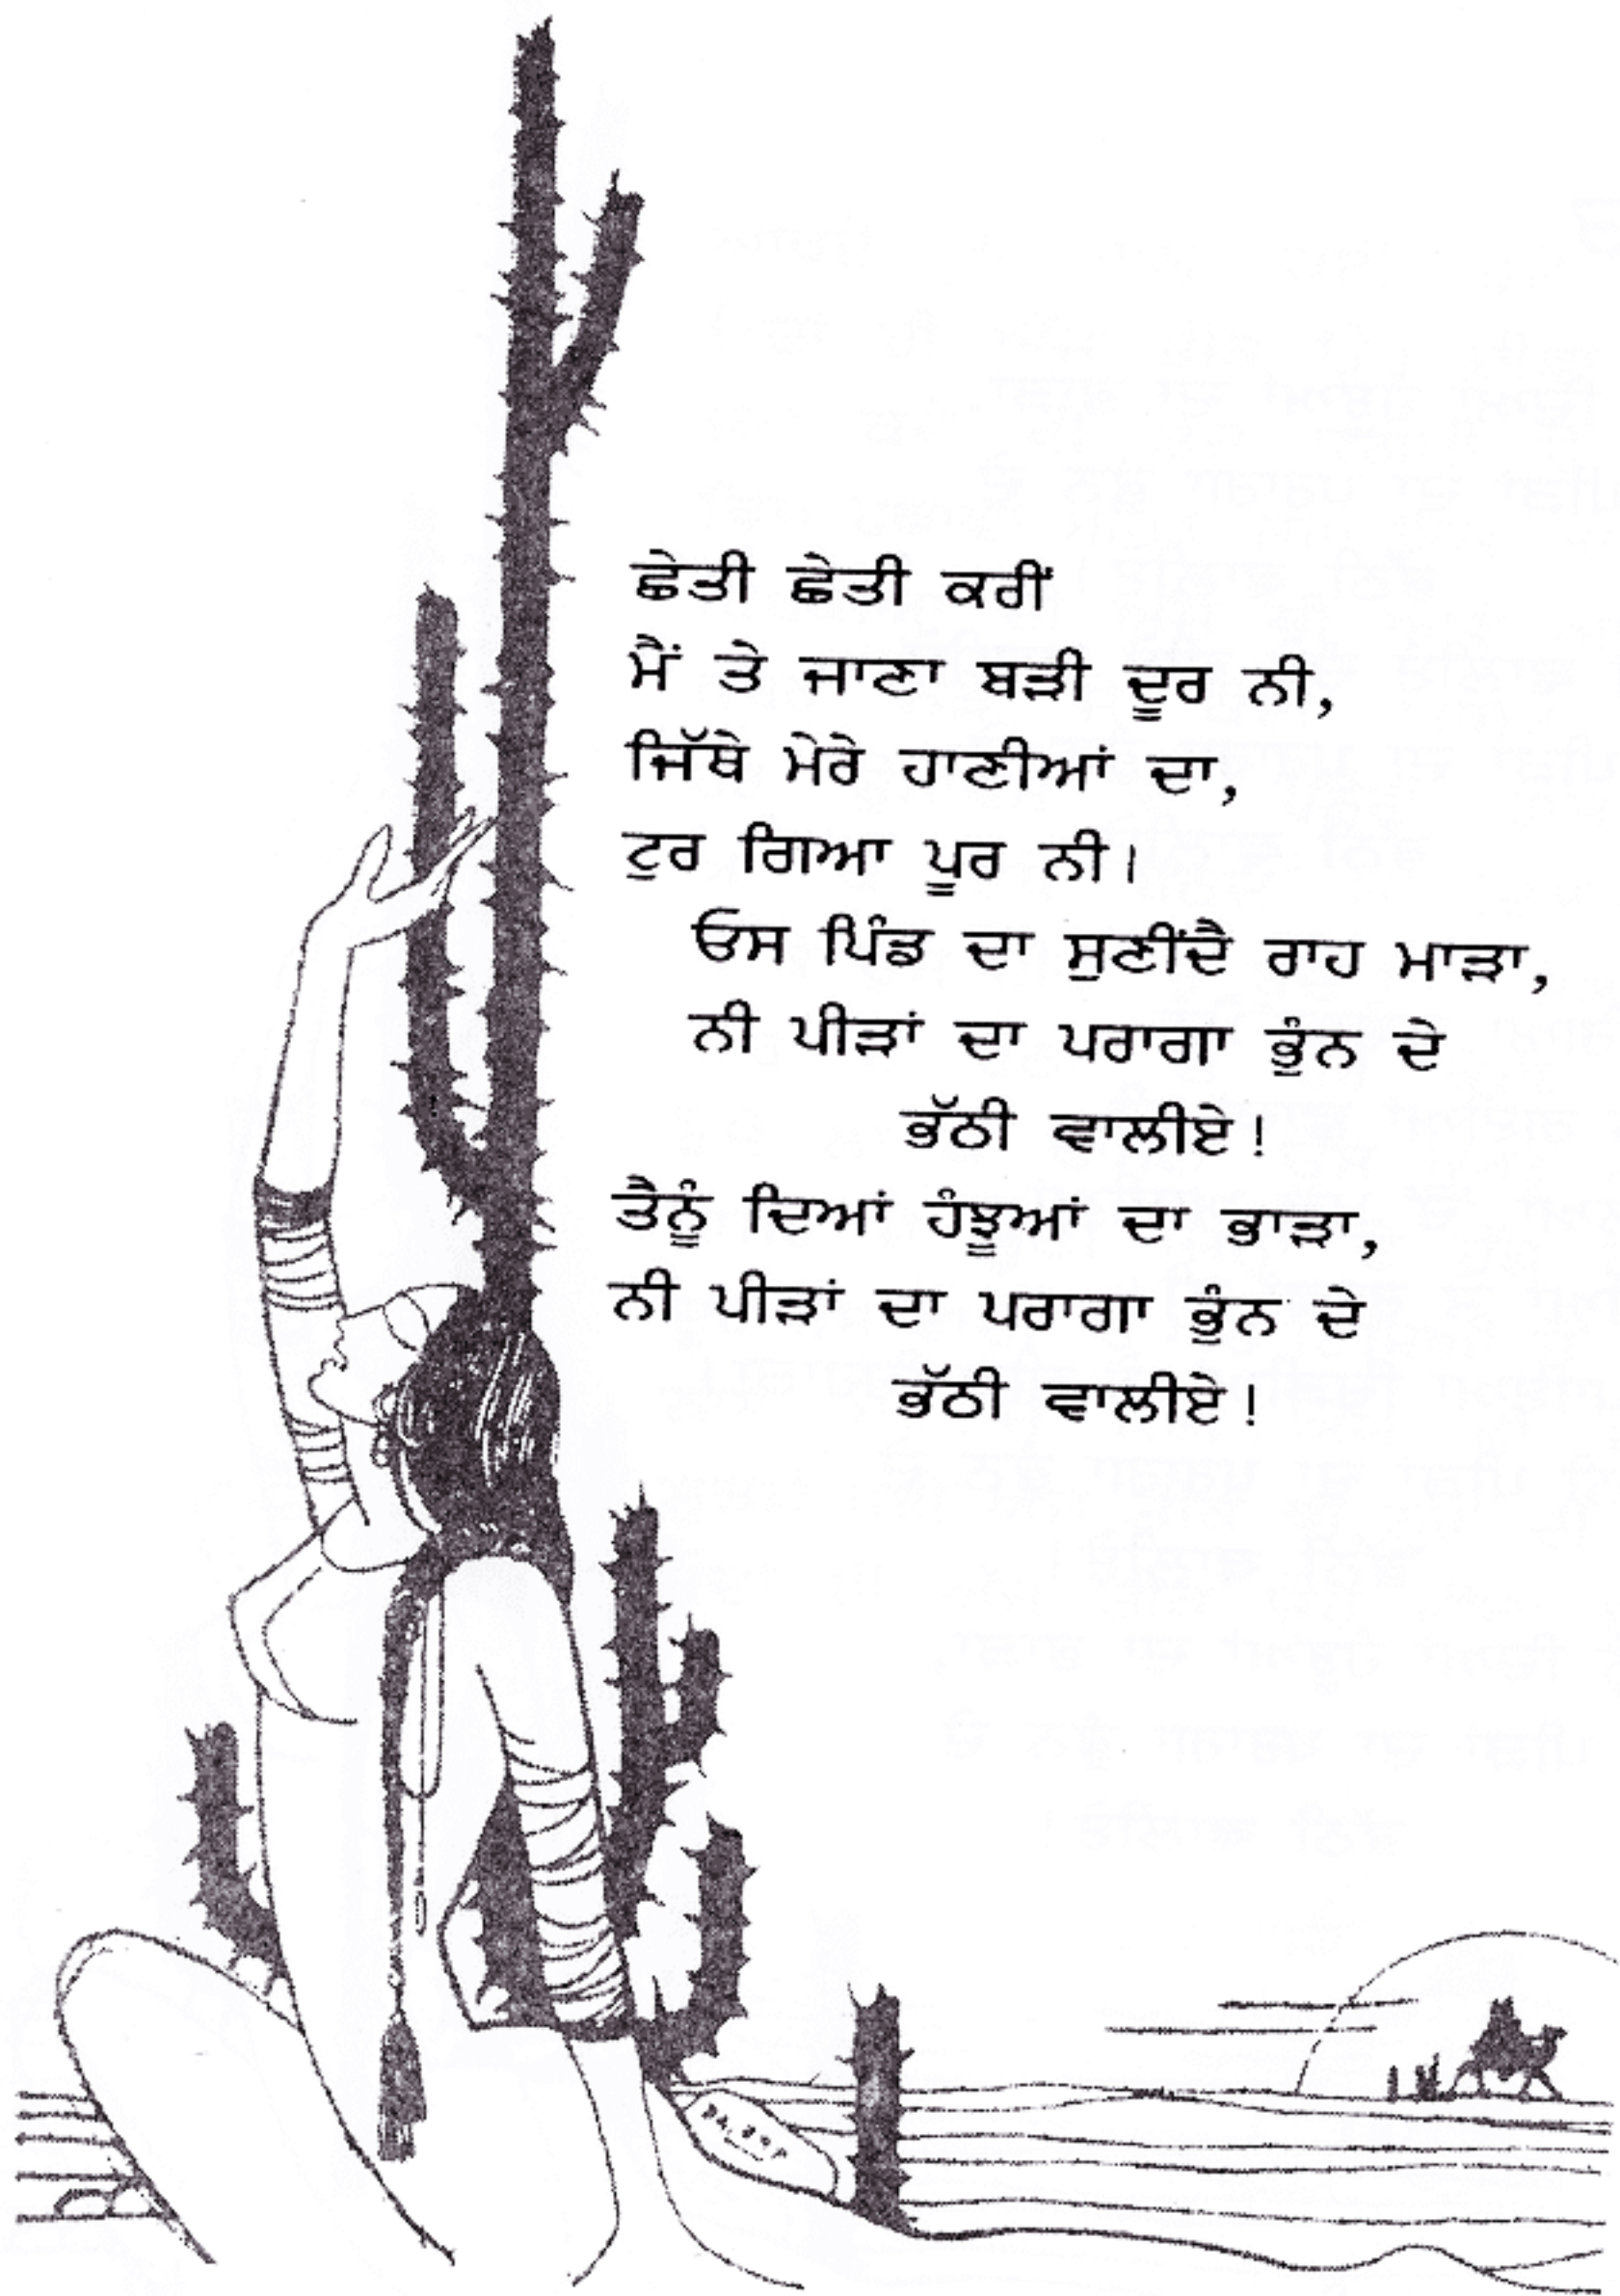 ਛੇਤੀ ਛੇਤੀ ਕਰੀਂ
ਮੈਂ ਤੇ ਜਾਣਾ ਬੜੀ ਦੂਰ ਨੀ,
ਜਿੱਥੇ ਮੇਰੇ ਹਾਣੀਆਂ ਦਾ,
ਟੁਰ ਗਿਆ ਪੂਰ ਨੀ।
ਓਸ ਪਿੰਡ ਦਾ ਸੁਣੀਂਦੈ ਰਾਹ ਮਾੜਾ,
ਨੀ ਪੀੜਾਂ ਦਾ ਪਰਾਗਾ ਭੁੰਨ ਦੇ
ਭੱਠੀ ਵਾਲੀਏ!
ਤੈਨੂੰ ਦਿਆਂ ਹੰਝੂਆਂ ਦਾ ਭਾੜਾ,
ਨੀ ਪੀੜਾਂ ਦਾ ਪਰਾਗਾ ਭੁੰਨ ਦੇ
ਭੱਠੀ ਵਾਲੀਏ!